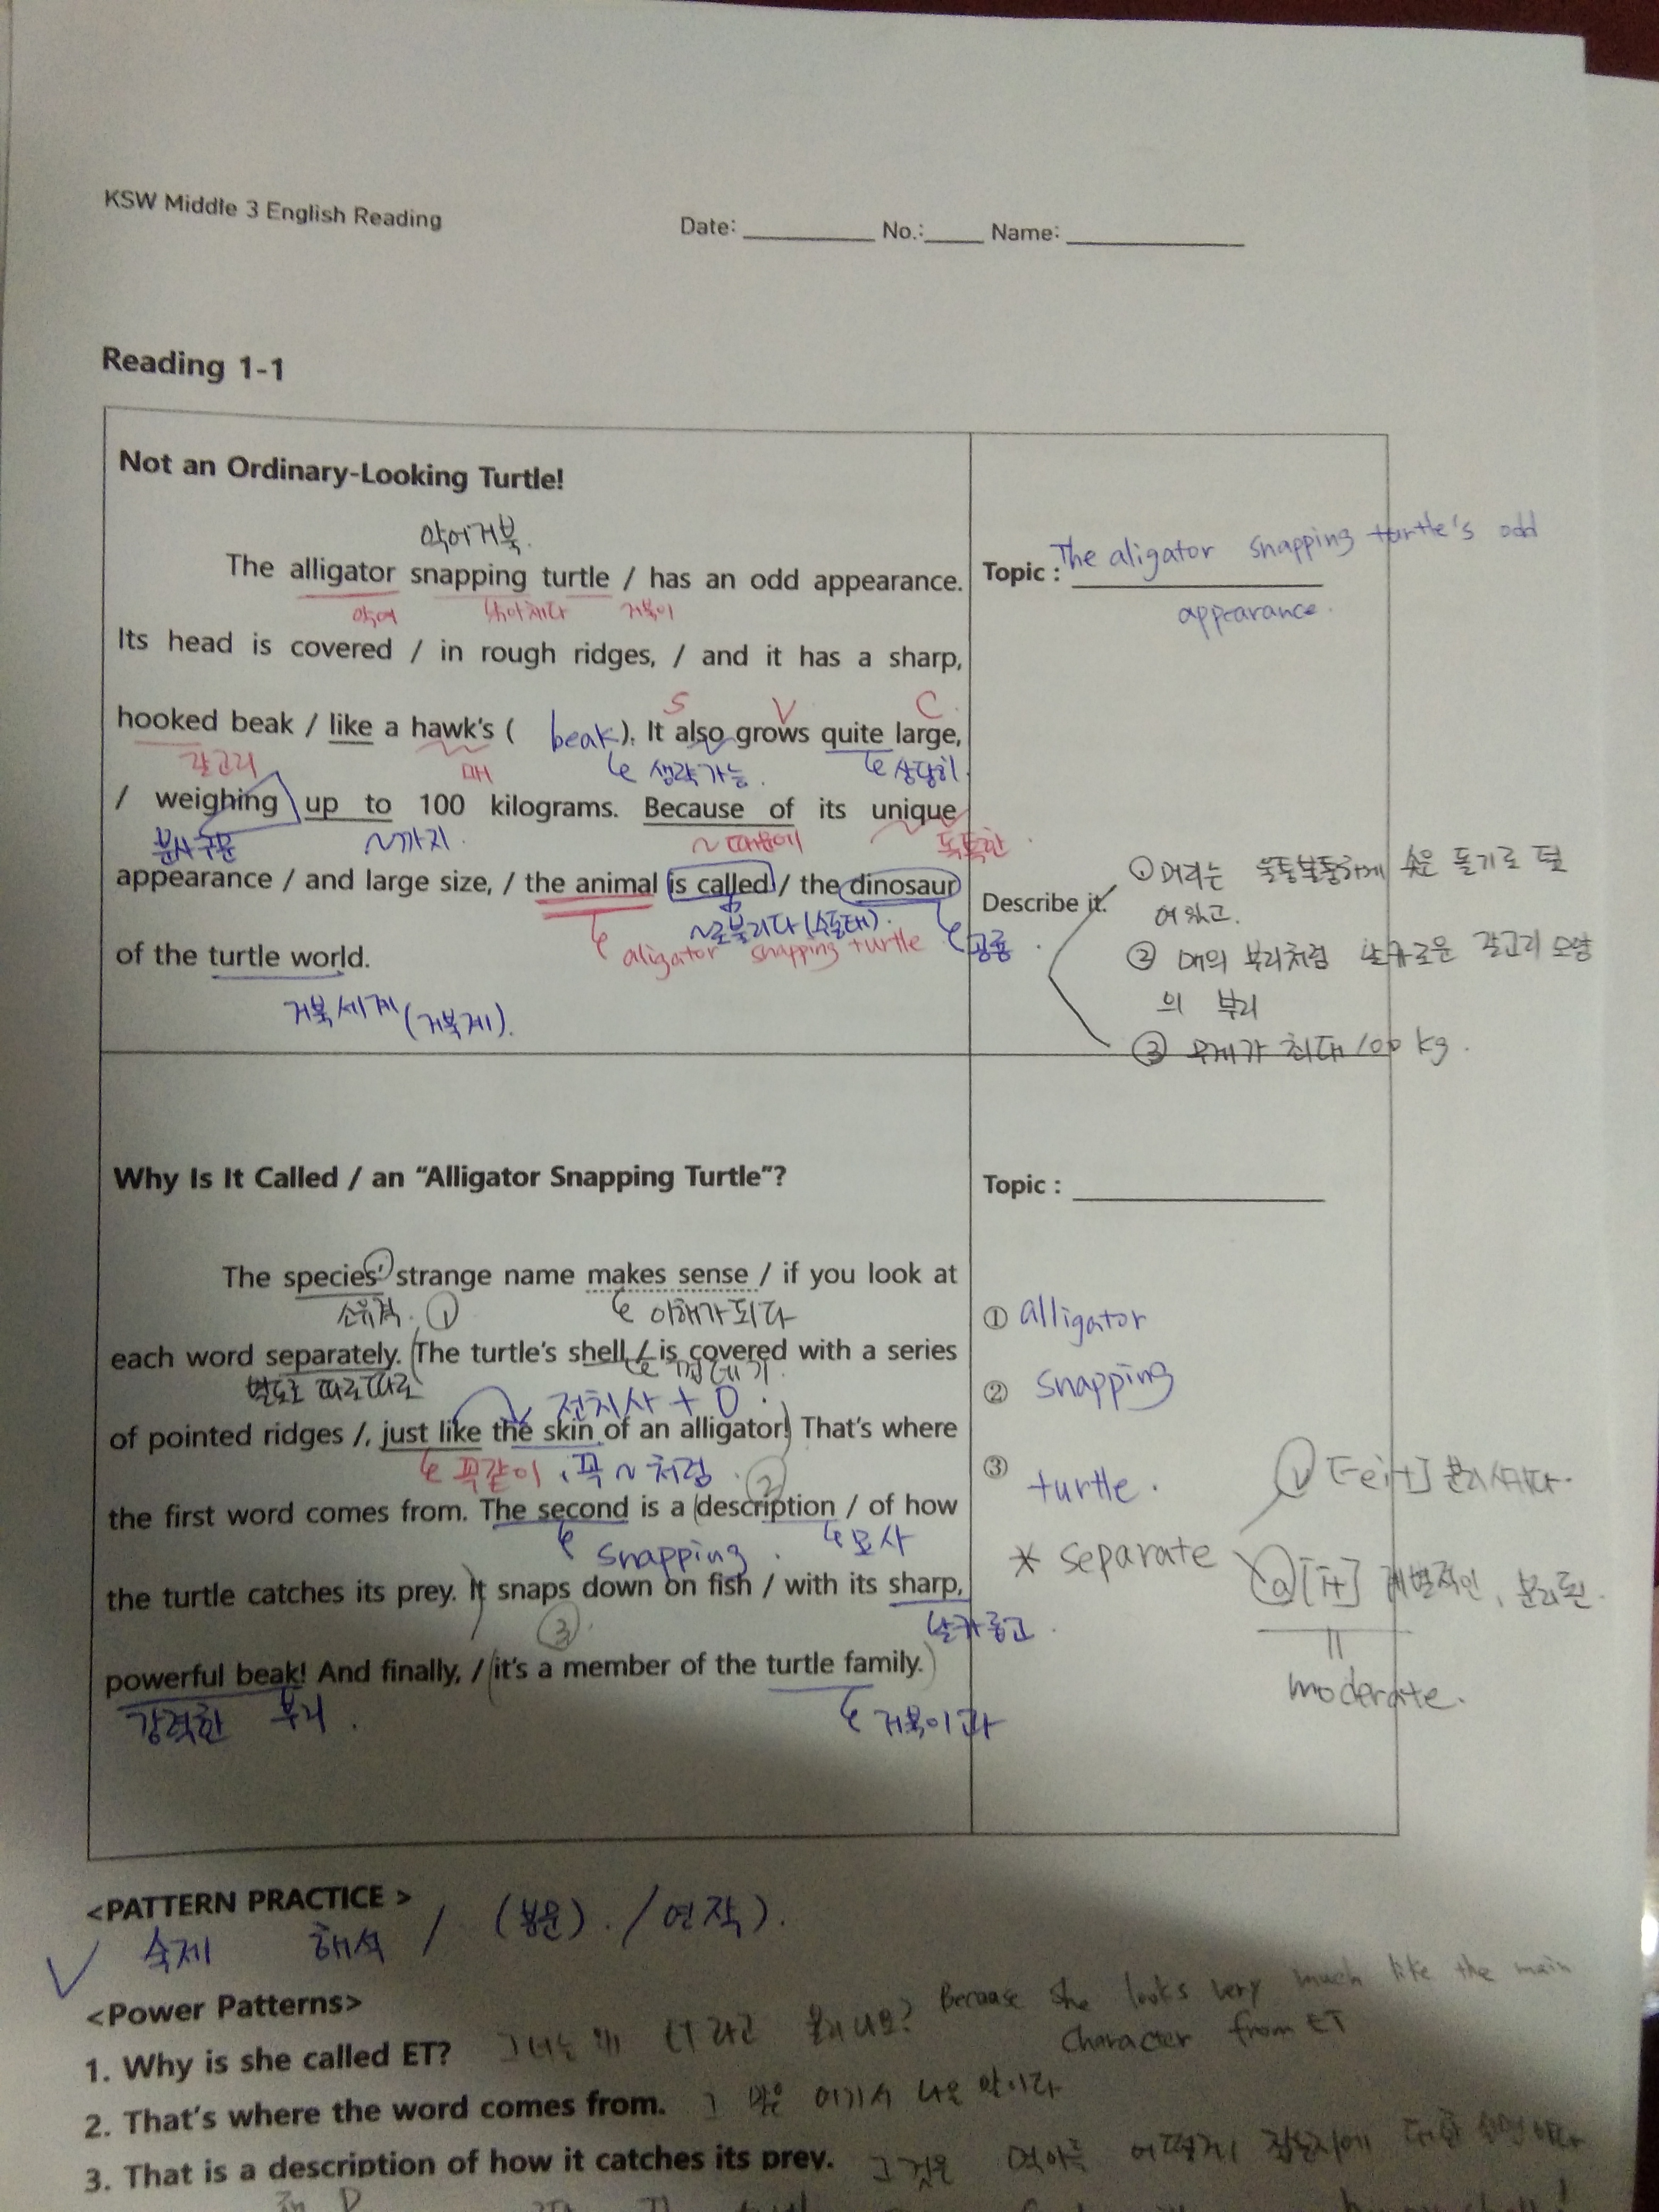 KSW Middle 3 English Reading
Date: No.: Name:
Reading 1-1
Not an Ordinary-Looking Turtle!
악어거북.
The alligator snapping turtle / has an odd appearance.
악어 낚아채다 거북이
Its head is covered / in rough ridges, / and it has a sharp,
S V C
hooked beak / like a hawk's ( beak). It also grows quite large,
갈고리 매 생략가능. 상당히
/ weighing up to 100 kilograms. Because of its unique
분사구문 ~까지. ~때문에 독특한
appearance / and large size, / the animal is called / the dinosaur
~로불리다(수동태).
aligator snapping turtle 공룡.
of the turtle world.
거북세계(거북계).
Topic : The aligator snapping turtle's odd
appearance.
Describe it.
① 머리는 울퉁불퉁하게 솟은 돌기로 덮
여있고.
② 매의 부리처럼 날카로운 갈고리 모양
의 부리
③ 무게가 최대 100 kg.
Why Is It Called / an “Alligator Snapping Turtle”?
The species' strange name makes sense / if you look at
소유격. ① 이해가되다
each word separately. (The turtle's shell / is covered with a series
별도로 따로따로 껍데기
전치사 + O.
of pointed ridges /, just like the skin of an alligator!) That's where
똑같이, 꼭 ~처럼. ②
the first word comes from. The second is a (description / of how
snapping. 묘사
the turtle catches its prey. It) snaps down on fish / with its sharp,
③ 날카롭고.
powerful beak! And finally, / (it's a member of the turtle family.)
강력한 부리. 거북이과
Topic :
① alligator
② snapping
③ turtle.
* separate
v [-eit] 분리시키다.
a [it] 개별적인, 분리된.
moderate.
<PATTERN PRACTICE >
숙제 해석 / (본문). /영작).
<Power Patterns>
1. Why is she called ET? 그녀는 왜 ET라고 불리나요? Because she looks very much like the main
character from ET
2. That's where the word comes from. 그 말은 여기서 나온 말이다
3. That is a description of how it catches its prey. 그것은 먹이를 어떻게 잡는지에 대한 설명이다